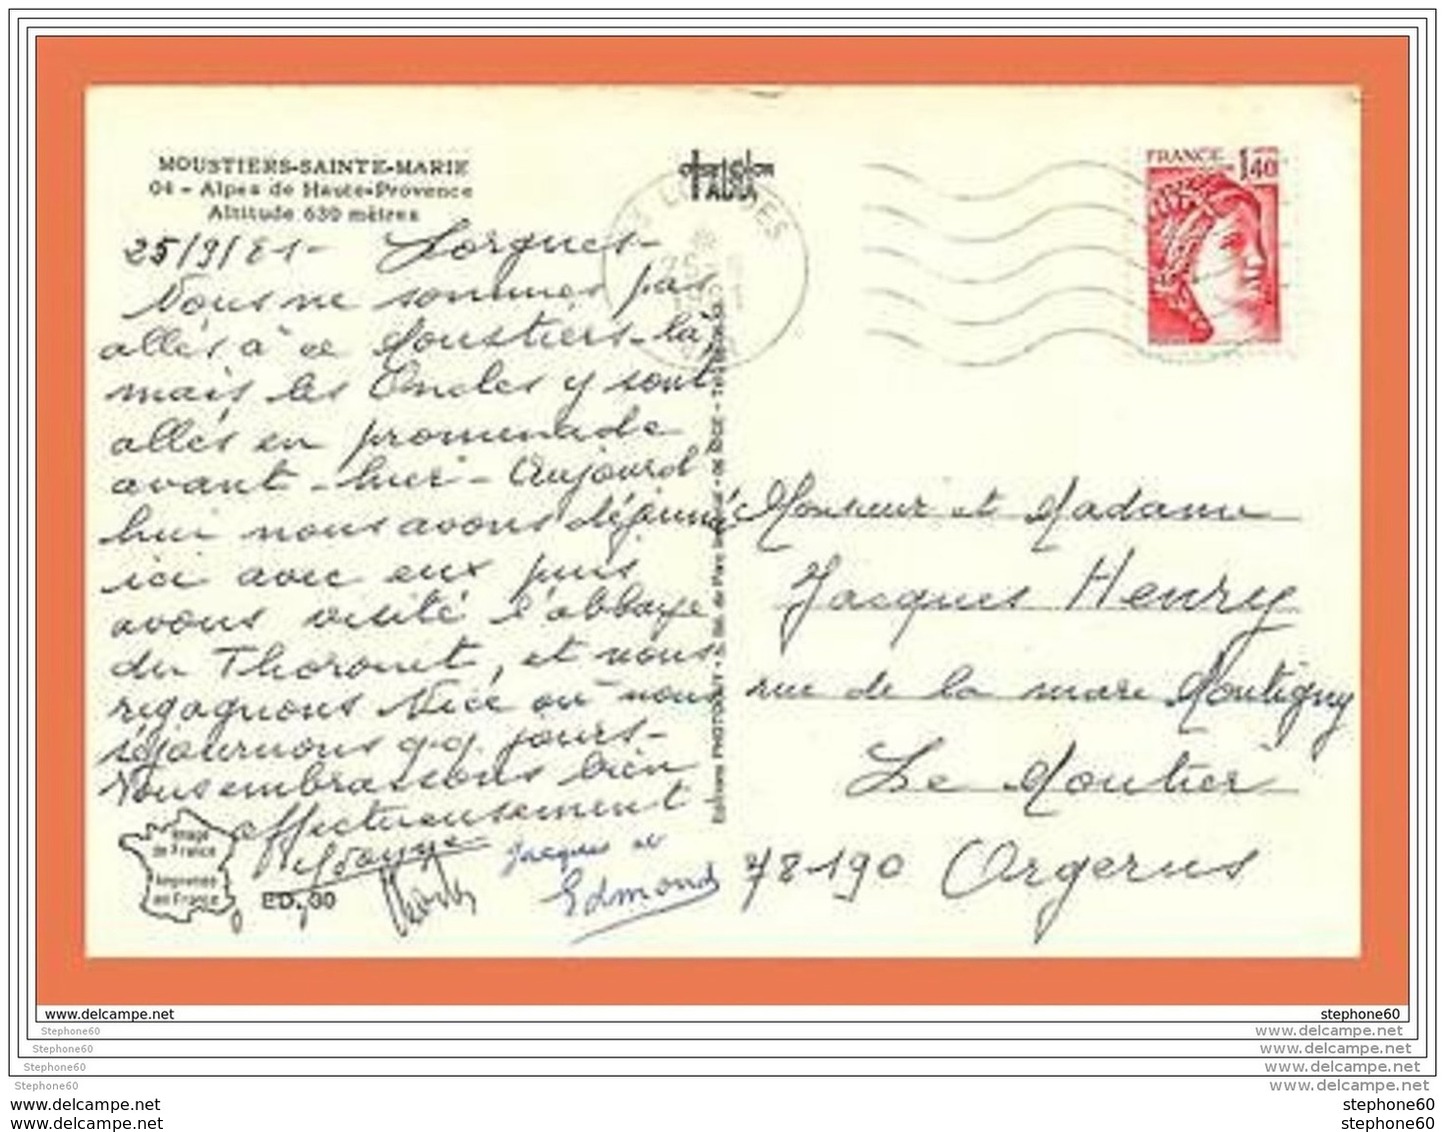 MOUSTIERS-SAINTE-MARIE
04 - Alpes de Haute-Provence
Altitude 630 mètres
25/9/81- Lorgues-
Nous ne sommes pas
allés à ce Moustiers-là,
mais les Oncles y sont
allés en promenade
avant-hier- Aujourd
hui nous avons déjeuné
ici avec eux puis
avons visité l'abbaye
du Thoronet, et nous
regagnons Nice où nous
séjournons q.q. jours-
Nous embrassons bien
affectueusement-
Jacques et
Edmond
Image
de France
Imprimée
en France
ED. 30
FRANCE
1,40
Monsieur et Madame
Jacques Henry
rue de la mare Montigny
Le Moutier
78-190 Orgerus
www.delcampe.net
stephone60
Stephone60
www.delcampe.net
Stephone60
www.delcampe.net
Stephone60
www.delcampe.net
Stephone60
www.delcampe.net
www.delcampe.net
stephone60
www.delcampe.net
stephone60